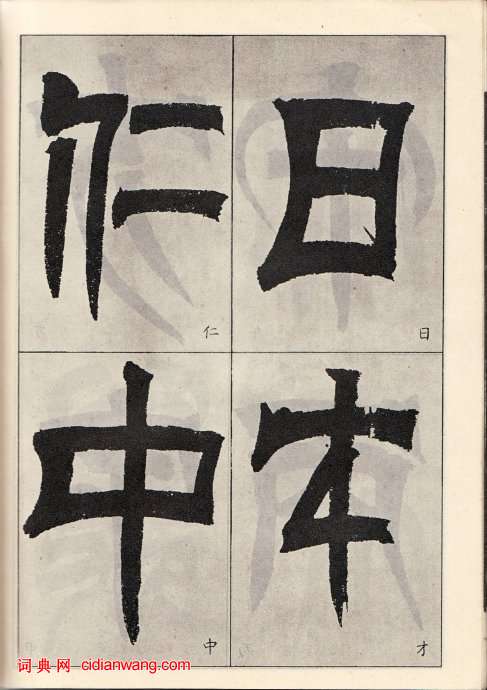 日
日
才
才
仁
仁
中
中
词典网 - cidianwang.com